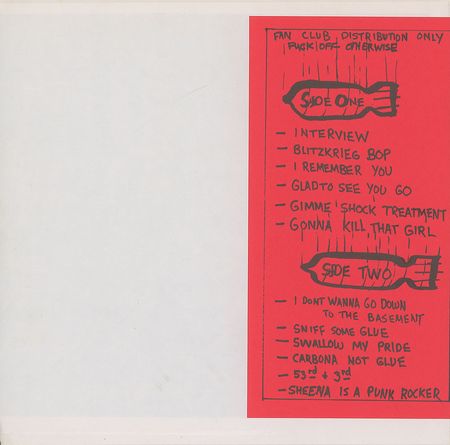 FAN CLUB DISTRIBUTION ONLY
FUCK OFF OTHERWISE
SIDE ONE
- INTERVIEW
- BLITZKRIEG BOP
- I REMEMBER YOU
- GLAD TO SEE YOU GO
- GIMME SHOCK TREATMENT
- GONNA KILL THAT GIRL
SIDE TWO
- I DONT WANNA GO DOWN
TO THE BASEMENT
- SNIFF SOME GLUE
- SWALLOW MY PRIDE
- CARBONA NOT GLUE
- 53rd + 3rd
- SHEENA IS A PUNK ROCKER